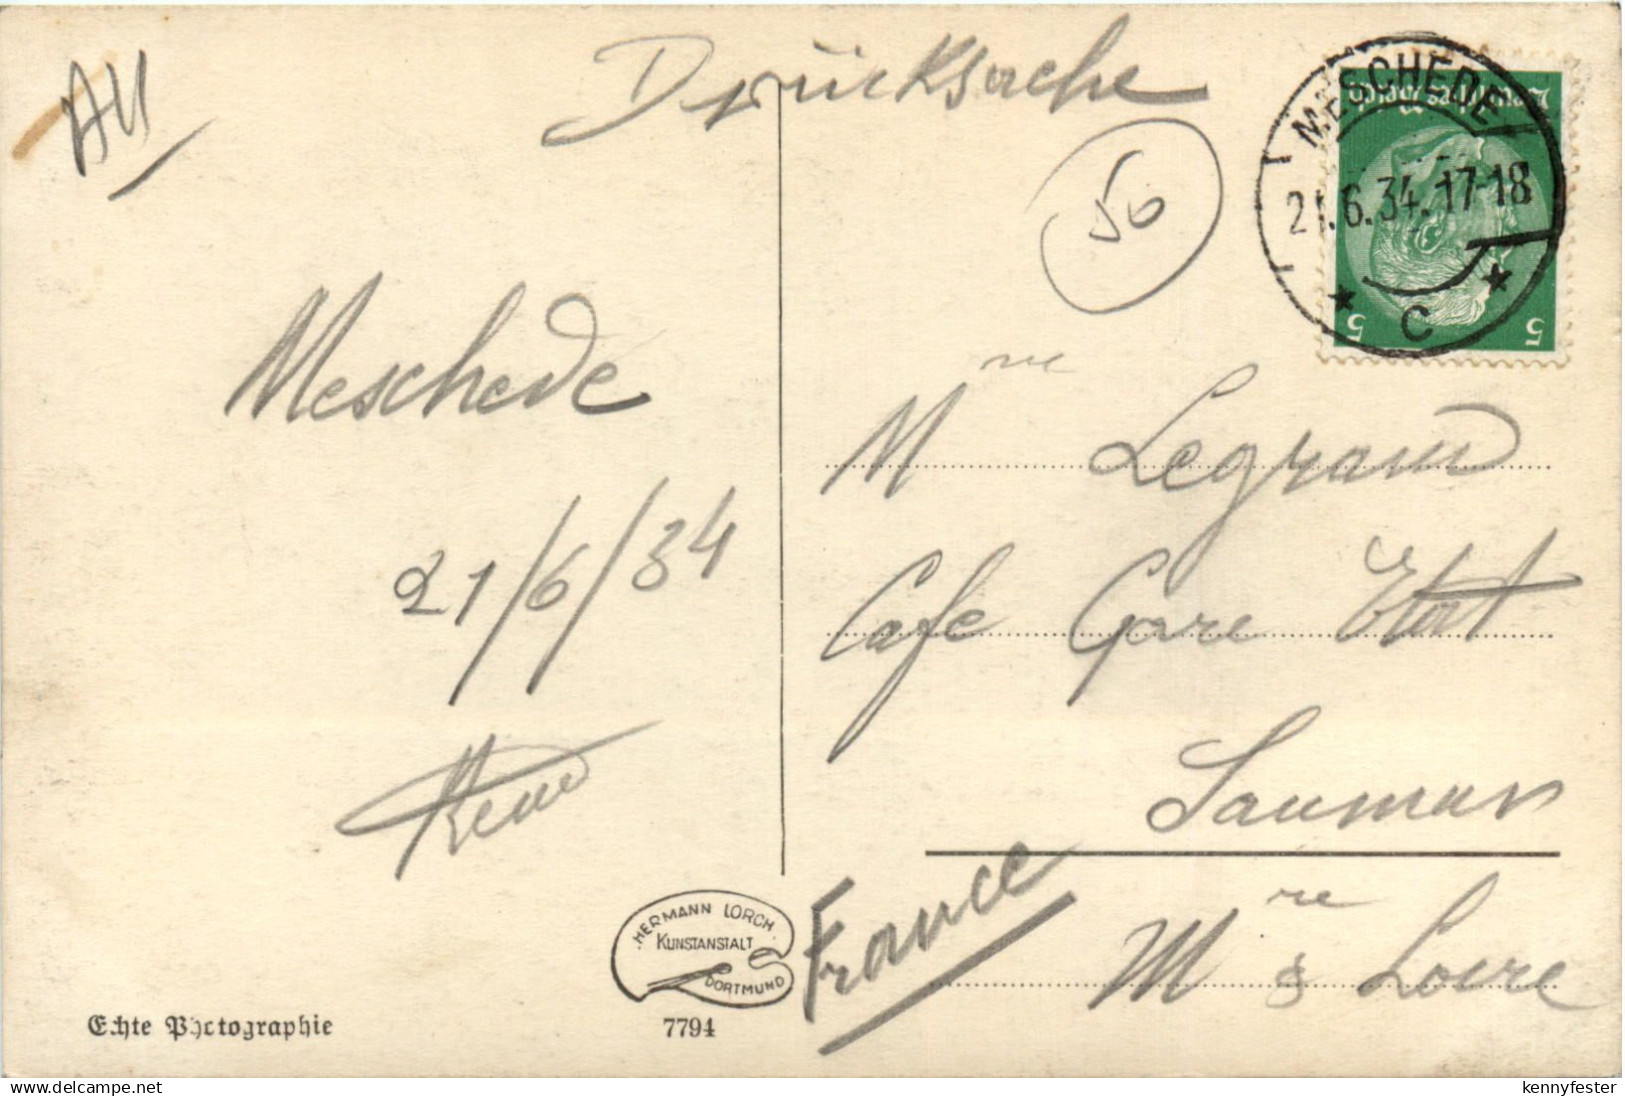 AU
Drucksache
56
MESCHEDE
21.6.34.17-18
C
Deutsches Reich
5 5
Meschede
21/6/34
Mme Legrand
Café Gare Etat
Saumur
Mne & Loire
France
HERMANN LORCH
KUNSTANSTALT
DORTMUND
Echte Photographie
7794
www.delcampe.net
kennyfester